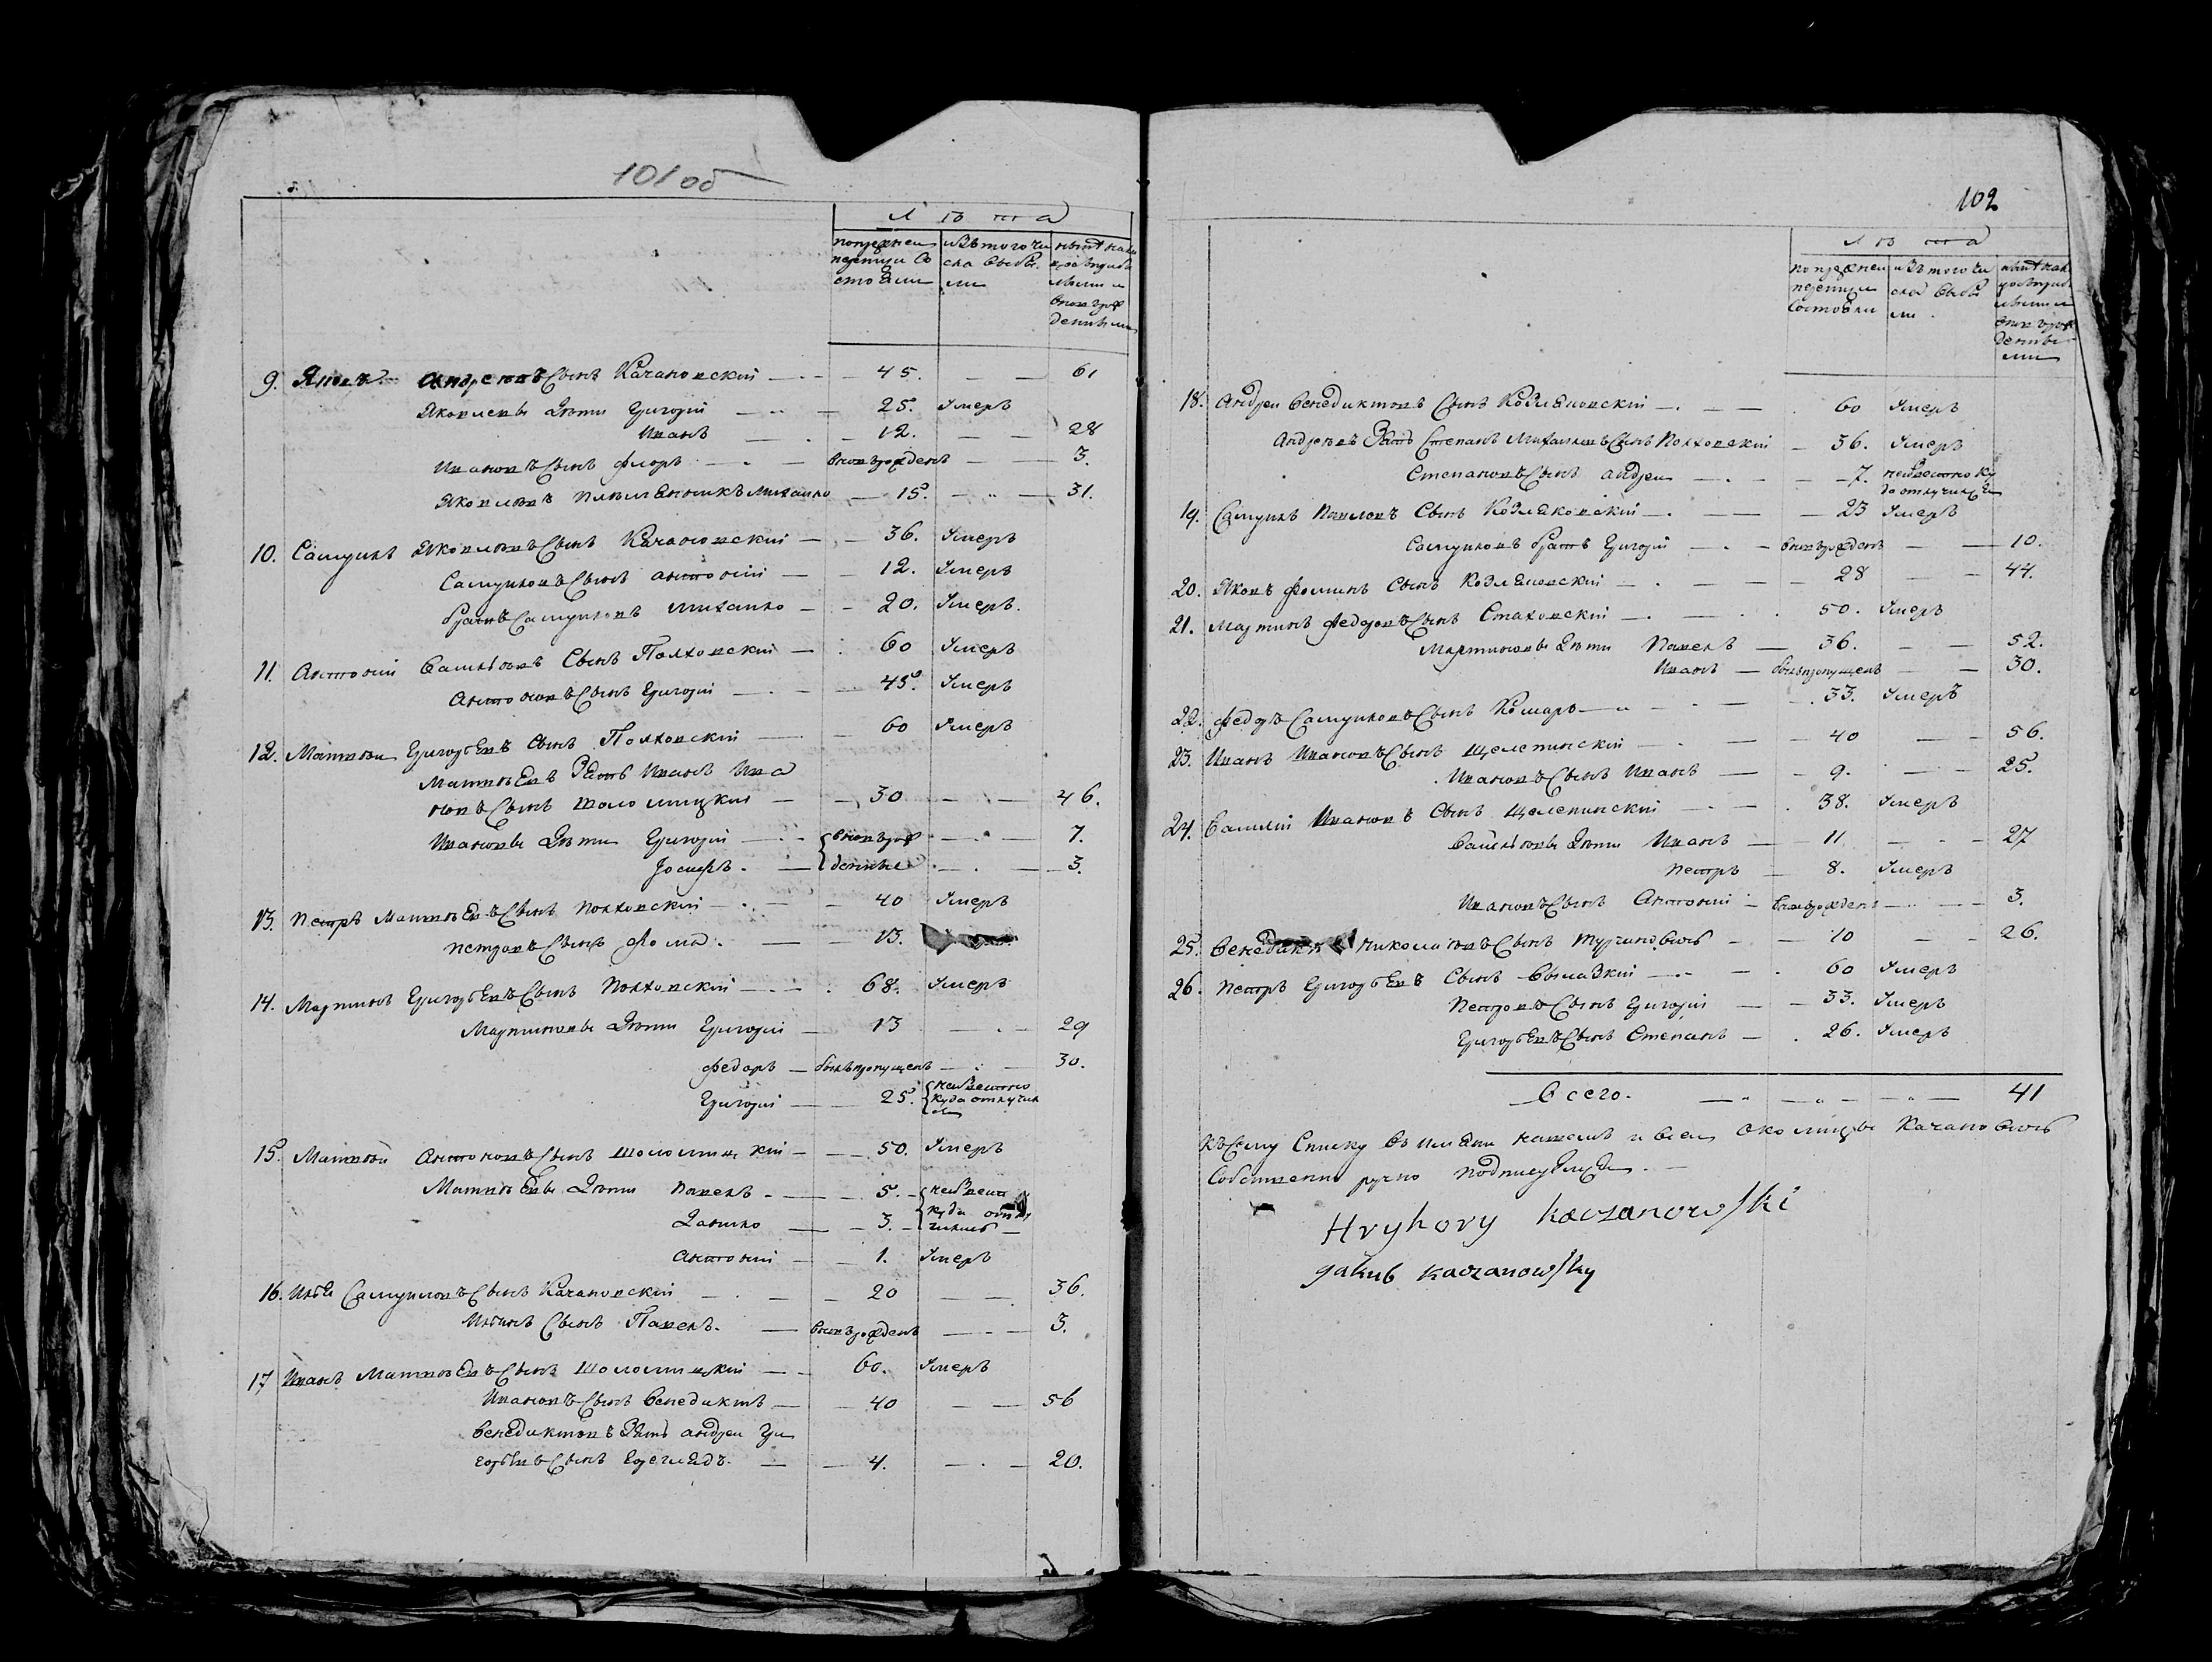 101 об
Лѣта
попрежней изътого чи нынѣ нали
ревизіи со сла выбы цо съприбы
стояли ли лыми и
вновь рож
денными
9. Яковъ Андреевъ Сынъ Качановскій — 45. — 61
Яковлевы Дѣти Григорій — 25. Умеръ
Иванъ — 12. — 28
Ивановъ Сынъ Флоръ — вновърожденъ — 3.
Яковлевъ племянникъ Михайло — 15. — 31.
10. Самуилъ Яковлевъ Сынъ Качановскій — 36. Умеръ
Самуиловъ Сынъ Антоній — 12. Умеръ
Братъ Самуиловъ Михайло — 20. Умеръ.
11. Антоній Васильевъ Сынъ Полховскій — 60 Умеръ
Антоновъ Сынъ Григорій — 45. Умеръ
12. Матвѣй Григорьевъ Сынъ Полховскій — 60 Умеръ
Матвѣевъ Зять Иванъ Ива
новъ Сынъ Шоломицкій — 30 — 46.
Ивановы Дѣти Григорій — вновьрож — 7.
Іосифъ. — денные — 3.
13. Петръ Матвѣевъ Сынъ Полховскій — 40 Умеръ
Петровъ Сынъ Фома. — 13.
14. Мартинъ Григорьевъ Сынъ Полховскій — 68. Умеръ
Мартиновы Дѣти Григорій — 13 — 29
Федоръ — былъпропущенъ — 30.
Григорій — 25. неизвестно
куда отлучил
ся
15. Матвѣй Антоновъ Сынъ Шоломицкій — 50. Умеръ
Матвѣевы Дѣти Павелъ — 5. — неизвест
куда отлу
Данило — 3. — чились
Антоній — 1. Умеръ
16. Илья Самуиловъ Сынъ Качановскій — 20 — 36.
Ильинъ Сынъ Павелъ. — вновърожденъ — 3.
17 Иванъ Матвѣевъ Сынъ Шоломицкій — 60. Умеръ
Ивановъ Сынъ Венедиктъ — 40 — 56
Венедиктовъ Зять Андрей Гри
горьевъ Сынъ — 4. — 20.
102
Лѣта
по прежней изътого чи нынѣ нали
ревизіи сла выбы цо съприбы
состояли ли. лыми и
вновь рож
денны
ми
18. Андрей Венедиктовъ Сынъ Козляковскій — 60 Умеръ
Андреевъ Зять Степанъ Михайловъ Сынъ Полховскій — 36. Умеръ
Степановъ Сынъ Андрей — 7. неизвестно ку
да отлучился
19. Самуилъ Павловъ Сынъ Козляковскій — 23 Умеръ
Самуиловъ Братъ Григорій — вновърожденъ — 10.
20. Яковъ Фоминъ Сынъ Козляковскій — 28 — 44.
21. Мартинъ Федоровъ Сынъ Стаховскій — 50. Умеръ
Мартиновы Дѣти Павелъ — 36. — 52.
Иванъ — былъпропущенъ — 30.
22. Федоръ Самуиловъ Сынъ Комаръ — 33. Умеръ
23. Иванъ Ивановъ Сынъ Щелепинскій — 40 — 56.
Ивановъ Сынъ Иванъ — 9. — 25.
24. Василій Ивановъ Сынъ Щелепинскій — 38. Умеръ
Васильевы Дѣти Иванъ — 11 — 27
Петръ — 8. Умеръ
Ивановъ Сынъ Антоній — вновърожденъ — 3.
25. Венедиктъ Николаевъ Сынъ — 10 — 26.
26. Петръ Григорьевъ Сынъ Высаzкій — 60 Умеръ
Петровъ Сынъ Григорій — 33. Умеръ
Григорьевъ Сынъ Степанъ — 26. Умеръ
Всего. — 41
Къ Сему Списку въ имяни нашемъ и всей околицы Качановичъ
Собственно ручно подписуемся. —
Hryhory Kaczanowski
Jakub Kaczanowsky